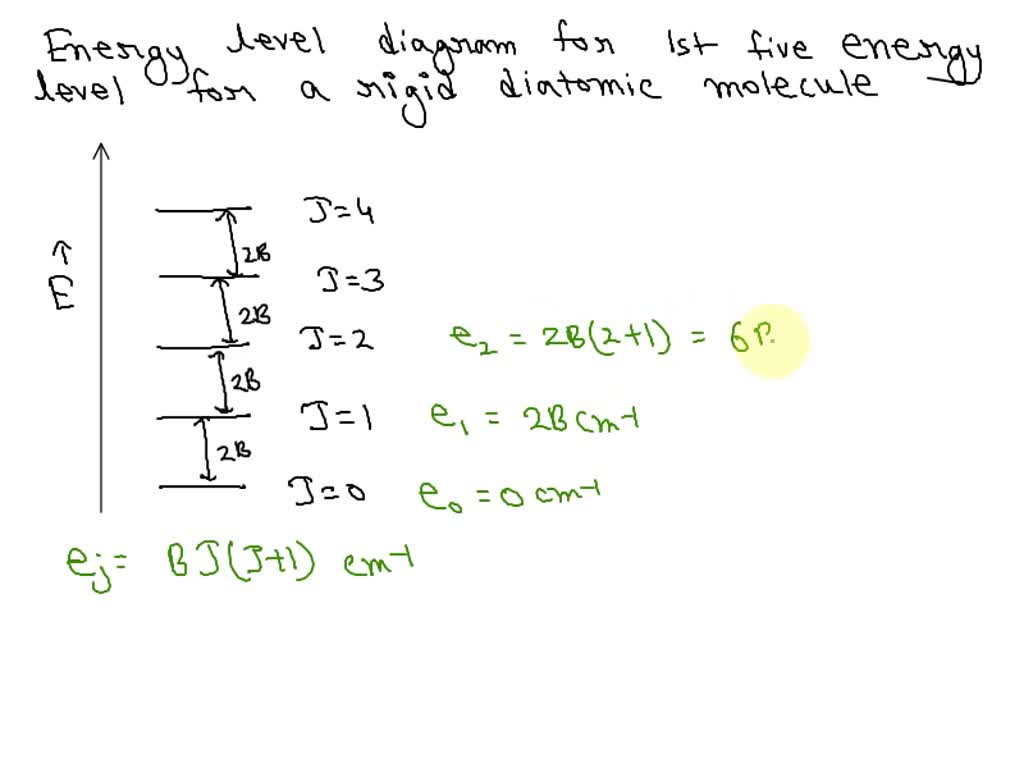 Energy level diagram for 1st five energy
level for a rigid diatomic molecule
J=4
2B
↑
E
J=3
2B
J=2
e₂ = 2B(2+1) = 6B
2B
J=1
e₁ = 2B cm⁻¹
2B
J=0
e₀ = 0 cm⁻¹
eⱼ = BJ(J+1) cm⁻¹